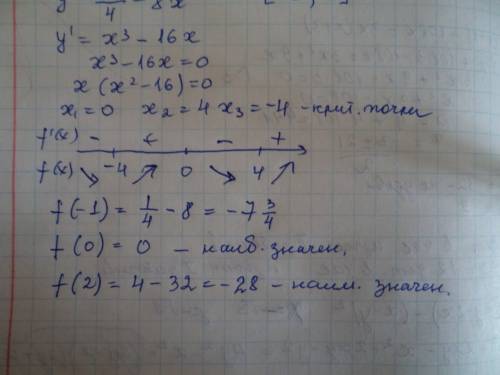 y' = x³ - 16x
x³ - 16x = 0
x (x² - 16) = 0
x₁ = 0 x₂ = 4 x₃ = -4 - крит. точки
f'(x) - + - +
f(x) ↘ -4 ↗ 0 ↘ 4 ↗
f(-1) = 1/4 - 8 = -7 3/4
f(0) = 0 - наиб. значен.
f(2) = 4 - 32 = -28 - наим. значен.